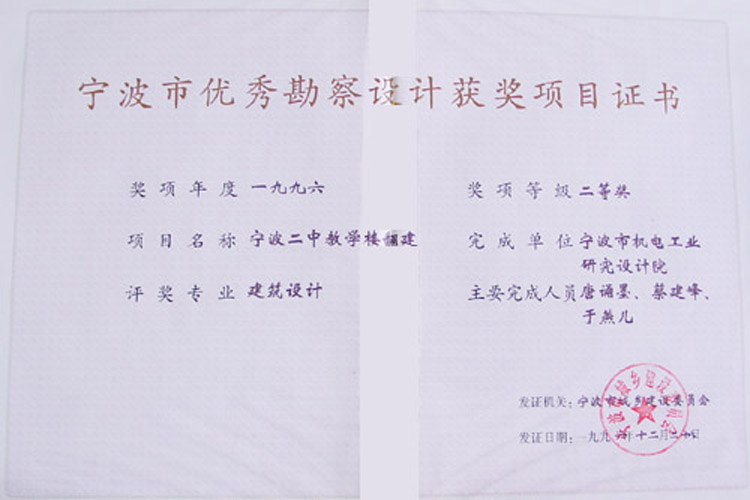 宁波市优秀勘察设计获奖项目证书
奖项年度 一九九六
项目名称 宁波二中教学楼翻建
评奖专业 建筑设计
奖项等级 二等奖
完成单位 宁波市机电工业
研究设计院
主要完成人员 唐诵墨、蔡建峰、
于燕儿
发证机关：宁波市城乡建设委员会
发证日期：一九九六年十二月二十日